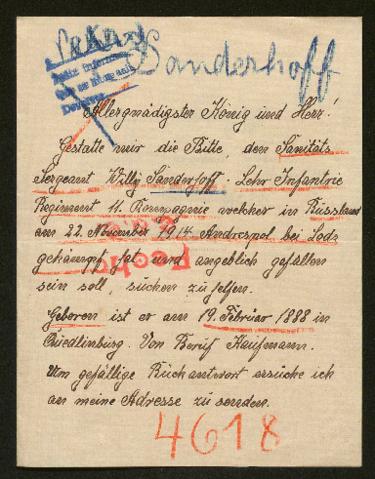 Sanderhoff
Allergnädigster König und Herr!
Gestatte mir die Bitte, den Sanitäts
Sergeant Willy Sanderhoff. Lehr Infantrie
Regiment 11. Kompagnie welcher in Russland
am 22. November 1914 Andrespol bei Lodz
gekämpf hat und angeblich gefallen
sein soll, suchen zu helfen.
Geboren ist er am 19. Februar 1888 in
Quedlinburg. Von Beruf Kaufmann.
Um gefällige Rückantwort ersuche ich
an meine Adresse zu senden.
4618